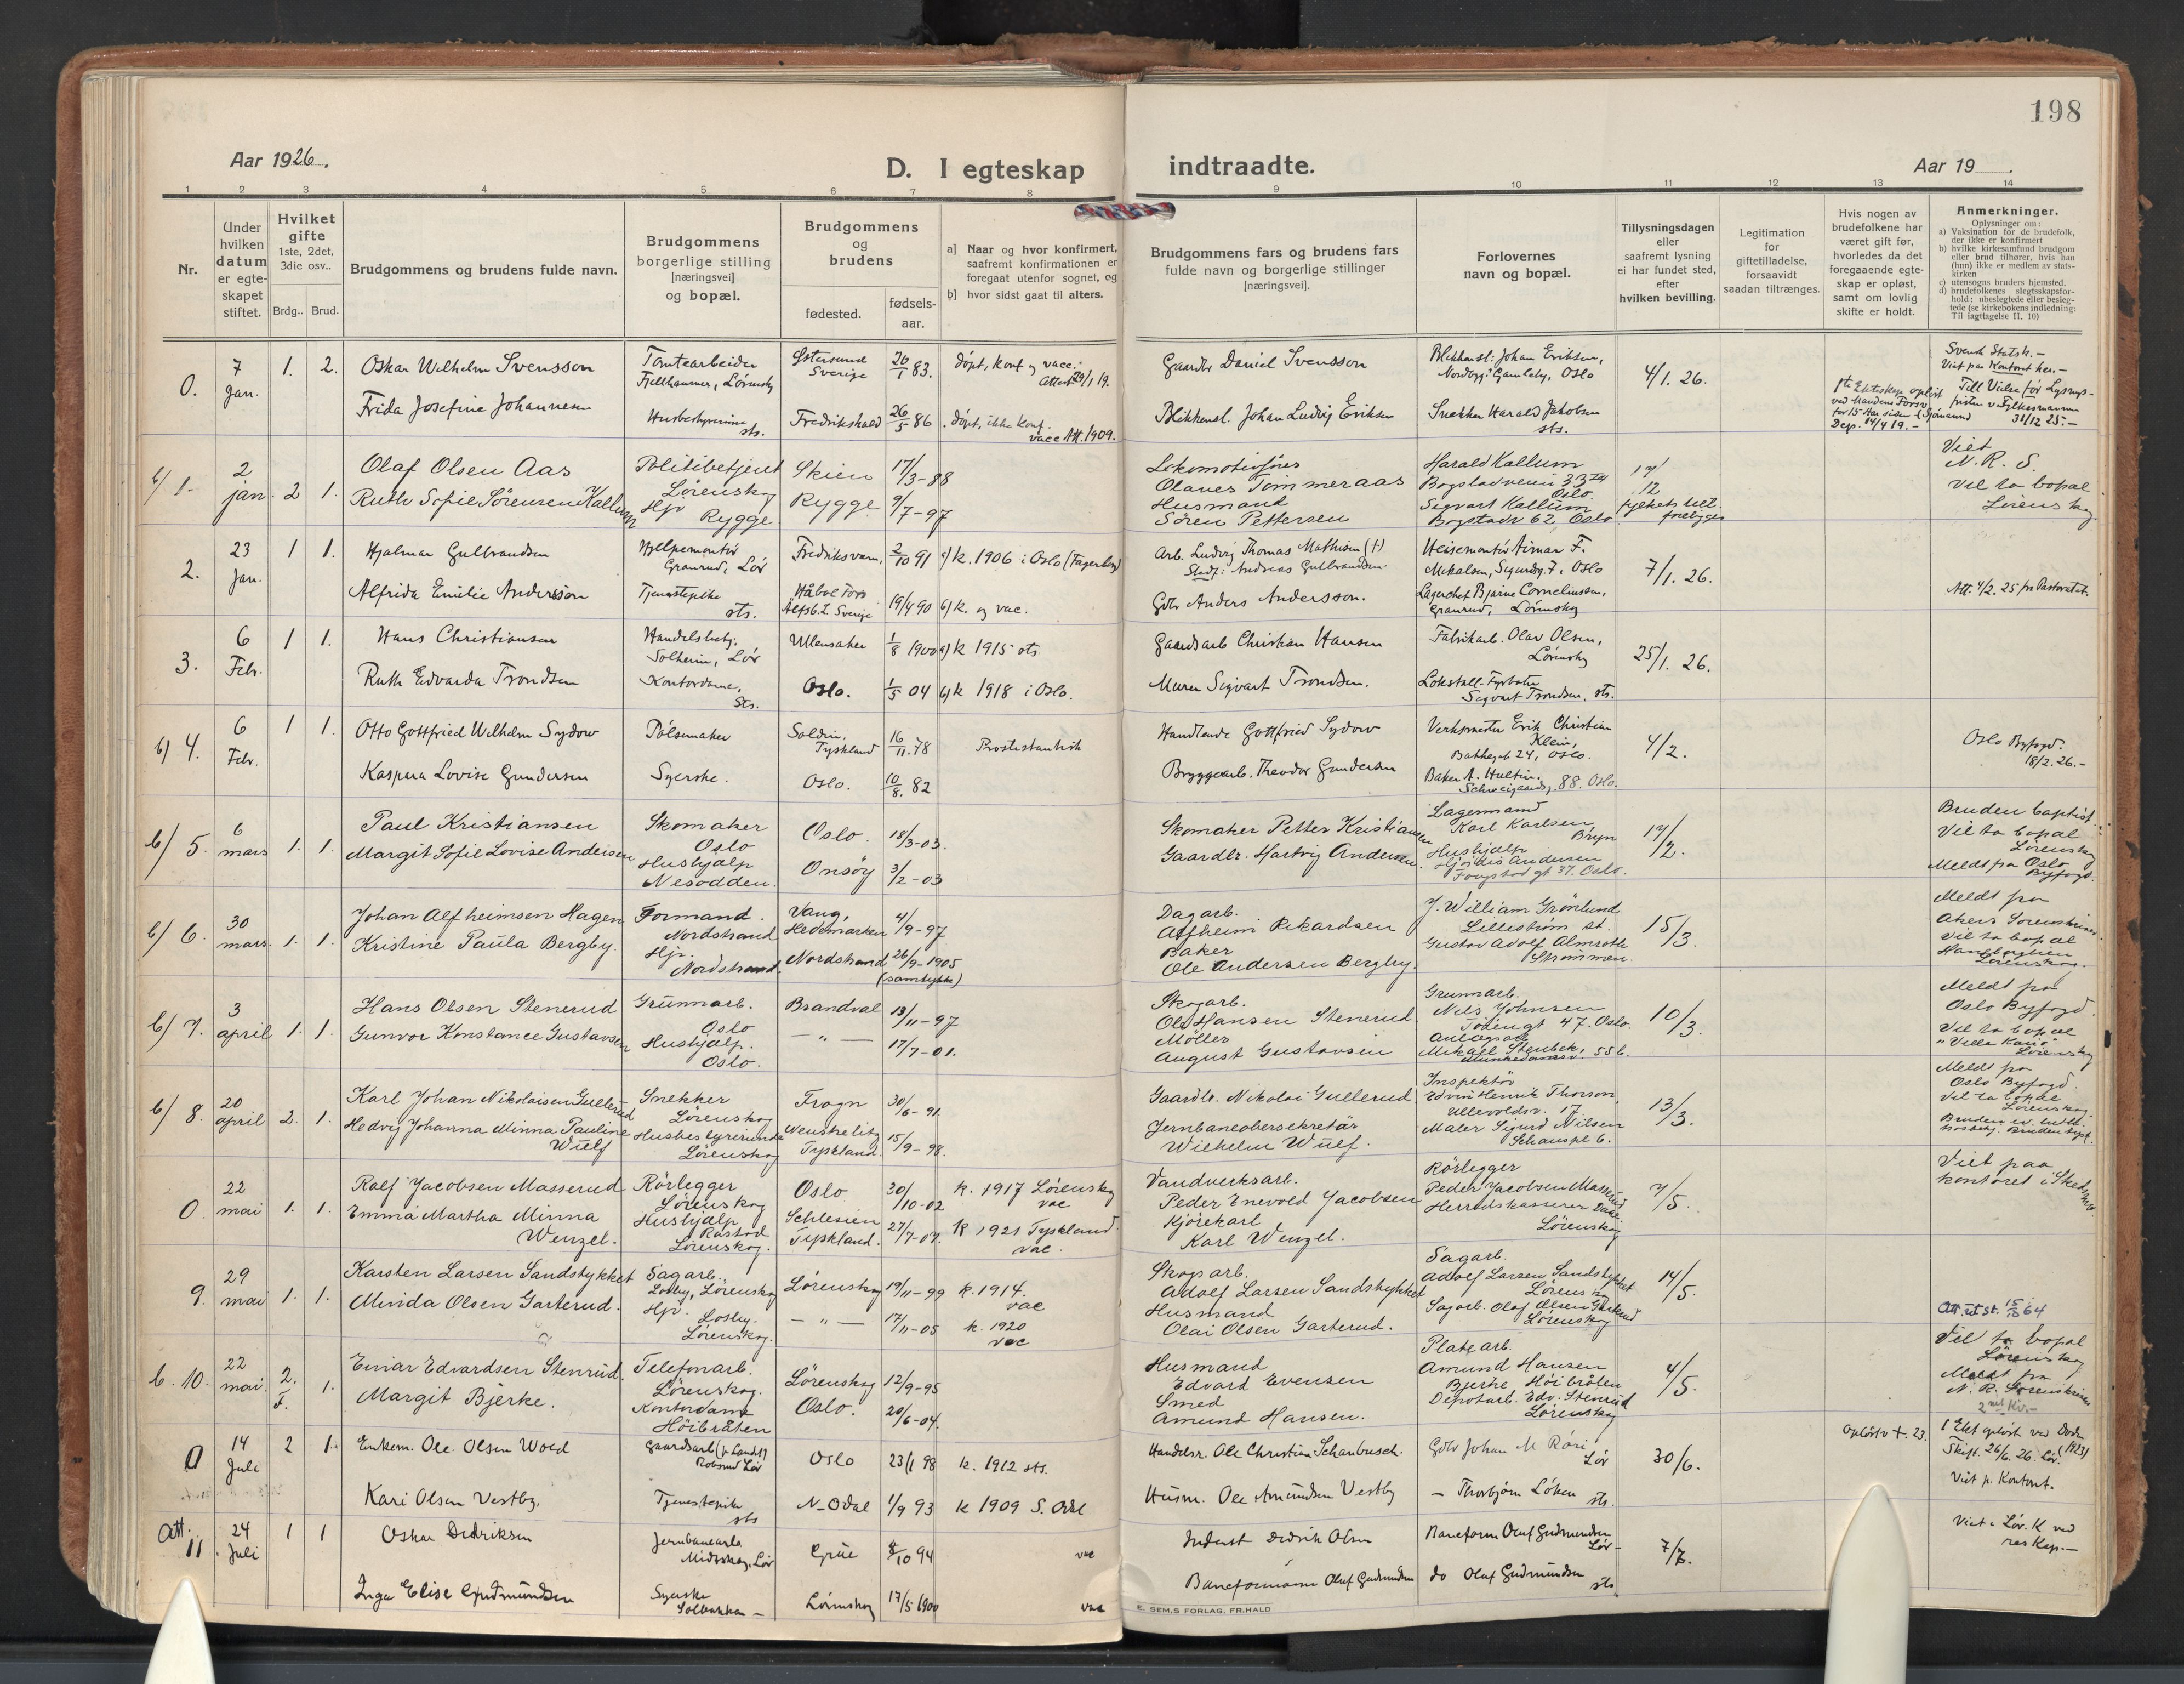 198
Aar 1926.
D. I egteskap indtraadte.
Aar 19 .
1 2 3 4 5 6 7 8 9 10 11 12 13 14
Nr.
Under hvilken datum er egteskapet stiftet.
Hvilket gifte 1ste, 2det, 3die osv..
Brdg.. Brud.
Brudgommens og brudens fulde navn.
Brudgommens borgerlige stilling [næringsvei] og bopæl.
Brudgommens og brudens
fødested.
fødsels-aar.
a] Naar og hvor konfirmert, saafremt konfirmationen er foregaat utenfor sognet, og
b] hvor sidst gaat til alters.
Brudgommens fars og brudens fars fulde navn og borgerlige stillinger [næringsvei].
Forlovernes navn og bopæl.
Tillysningsdagen eller saafremt lysning ei har fundet sted, efter hvilken bevilling.
Legitimation for giftetilladelse, forsaavidt saadan tiltrænges.
Hvis nogen av brudefolkene har været gift før, hvorledes da det foregaaende egte-skap er opløst, samt om lovlig skifte er holdt.
Anmerkninger.
Oplysninger om:
a) Vaksination for de brudefolk, der ikke er konfirmert
b) hvilke kirkesamfund brudgom eller brud tilhører, hvis han (hun) ikke er medlem av stats-kirken
c) utensogns bruders hjemsted.
d) brudefolkenes slegtsskapsfor-hold: ubeslegtede eller besleg-tede (se kirkebokens indledning: Til iagttagelse II. 10)
0. 7 Jan. 1. 2. Oskar Wilhelm Svensson Tomtearbeider Fjellhammer, Lørenskog Østersund Sverige 20/1 83. døpt, konf og vacc. Attest 29/1 19. Gaardbr Daniel Svensson Blikkensl. Johan Eriksen, Oslo 4/1. 26. Svensk Statsk.-
Viet paa Kontoret her.-
Frida Josefine Johannesen Husbestyrerinne sts. Fredrikshald 26/5 86 døpt, ikke konf. vacc Att. 1909. Blikkensl. Johan Ludvig Eriksen Snekker Harald Jakobsen sts.
31/12 25.-
b/ 1. 2 jan. 2 1. Olaf Olsen Aas Politibetjent Lørenskog Skien 17/3-88 Lokomotivfører Olaves Tommeraas Harald Kallum Bogstadveien 33 Oslo 17/12 Viet N. R. S. Vil ta bopæl Lørenskog
Ruth Sofie Sørensen Kallum Hjv Rygge Rygge 9/7-97 Husmand Søren Pettersen Sigvart Kallum Bogstadv 62, Oslo
2. 23 Jan. 1 1. Hjalmar Gulbrandsen Hjelpemontør Granrud, Lør Fredriksværn, 2/10 91 a) k. 1906 i Oslo (Fagerborg) Arb. Ludvig Thomas Mathisen (+) Stedf: Andreas Gulbrandsen Heisemontør Aimar F. Mikalsen, Sigurdsg. 7, Oslo 7/1. 26.
Alfrida Emilie Andersson Tjenestepike sts. Håbol Fors Älfsb. L Sverige 19/4 90 b) k. og vac. Gbr Anders Andersson. Lagerchef Bjarne Corneliussen, Granrud, Lørenskog Att. 4/2. 25 fra Pastoratet.
3. 6 Febr. 1 1. Hans Christiansen Handelsbetj. Solheim, Lør Ullensaker 1/8 1900 a) k 1915 sts Gaardsarb Christian Hansen Fabrikarb. Olav Olsen, Lørenskog 25/1. 26.
Ruth Edvarda Trondsen Kontordame, Sts. Oslo. 1/5 04 b) k 1918 i Oslo. Murer Sigvart Trondsen. Lokstall-Fyrbøter Sigvart Trondsen, sts.
b) 4. 6 Febr. 1 1. Otto Gottfried Wilhelm Sydow Pølsemaker Soldin, Tyskland 16/11. 78 Protestantisk Handlende Gottfried Sydow Verksmester Erik Christian Klein, Bakkegt 24, Oslo. 4/2. Oslo Byfogd. 18/2. 26.-
Kaspera Lovise Gundersen Syerske. Oslo. 10/8. 82 Bryggearb. Theodor Gundersen Baker A. Hultin, Schweigaardsg. 88. Oslo.
b/ 5. 6 mars 1. 1. Paul Kristiansen Skomaker Oslo Oslo. 18/3-03. Skomaker Petter Kristiansen Lagermand Karl Karlsen Bryn 17/2. Bruden baptist. Vil ta bopæl Lørenskog
Margit Sofie Lovise Andersen Hushjælp Nesodden. Onsøy 3/2-03 Gaardbr. Hartvig Andersen. Hushjælp Hjørdis Andersen Fougstad gt 37. Oslo. Meldt fra Oslo Byfogd.
b/ 6. 30 mars. 1. 1. Johan Alfheimsen Hagen Formand. Nordstrand Vang, Hedemarken 4/9-97 Dagarb. Alfheim Rikardsen J. William Grønlund Lillestrøm st. 15/3. Meldt fra Akers Sorenskriver. Vil ta bopæl
Kristine Paula Bergby. Hjv. Nordstrand. Nordstrand 26/9-1905 (samtykke) Baker Ole Andersen Bergby. Gustav Adolf Almroth Strømmen. Lørenskog.
b/ 7. 3 april 1. 1. Hans Olsen Stenerud Grunnarb. Oslo Brandval 13/11-97 Skogarb. Ole Hansen Stenerud Grunnarb. Nils Johnsen Totengt 47. Oslo. 10/3. Meldt fra Oslo Byfogd.
Gunvor Konstance Gustavsen Hushjælp. Oslo. — " — 17/7-01. Møller August Gustavsen Anlegsarb Mikael Stenbek, Munkedamsv. 55 b. Vil ta bopæl Lørenskog
b/ 8. 20 april 2. 1. Karl Johan Nikolaisen Gullerud Snekker Lørenskog Frogn 30/6-91. Gaardbr. Nikolai Gullerud Inspektør Edvin Henrik Thorson, Ullevoldsv. 17 13/3. Meldt fra Oslo Byfogd. Vil ta bopæl Lørenskog.
Hedvig Johanna Minna Pauline Wulf Husbestyrerinde Lørenskog Tyskland. 15/9-98. Jernbaneobersekretær Wilhelm Wulf. Maler Sigurd Nilsen Schauspl 6.
0. 22 mai 1. 1. Ralf Jacobsen Masserud Rørlegger Lørenskog Oslo. 30/10-02 k. 1917 Lørenskog vac Vandverksarb. Peder Enevold Jacobsen Rørlegger Peder Jacobsen Masserud 7/5. Viet paa kontoret i Skedsmo.
Emma Martha Minna Wenzel. Hushjælp Rastad Lørenskog. Schlesien Tyskland. 27/7-07. k 1921 Tyskland vac. Kjørekarl Karl Wenzel. Herredskasserer Lørenskog
9. 29 mai 1. 1. Karsten Larsen Sandstykket Sagarb. Losby, Lørenskog Lørenskog 19/11-99 k. 1914. vac Skogsarb. Adolf Larsen Sandstykket Sagarb. Adolf Larsen Sandstykket Lørenskog 14/5.
Minda Olsen Garterud. Hjv. Losby. Lørenskog. — " — 17/11-05 k. 1920 vac Husmand Olai Olsen Garterud. Sagarb. Olaf Olsen Garterud Lørenskog Att. utst. 15/8 64
b. 10. 22 mai. 2. F. 1. Einar Edvardsen Stenrud. Telefonarb. Lørenskog. Lørenskog 12/9-95 Husmand Edvard Evensen Platearb. Amund Hansen Bjerke Høibråten 4/5. Vil ta bopæl Lørenskog
Margit Bjerke. Kontordame Høibråten Oslo. 20/6-04. Smed Amund Hansen. Depotarb. Edv. Stenrud Lørenskog Meldt fra N. R. Sorenskriver
0 14 Juli 2 1. Enkem. Ole Olsen Wold Gaardsarb Robsrud Lør Oslo 23/1 98 k. 1912 sts. Handelsr. Ole Christian Schanbusch. Gbr Johan M Røri Lør 30/6. Opløst v +. 23. 1 Ekt opløst ved Døden (1923) Skift. 26/6. 26. Lør.
Kari Olsen Vestby. Tjenestepike sts N-Odal 1/9 93 k 1909 S. Odal Husm. Ole Amundsen Vestby — Thorbjørn Løken sts. Viet p. Kontoret.
Att. 11 24 Juli 1 1 Oskar Dedriksen Jernbanearb Midtskog, Lør Grue 8/10 94 vac Inderst Dedrik Olsen Baneform Oluf Gudmundsen Lør- 7/7. Viet i Lør. K ved res Kap.-
Inga Elise Gudmundsen Syerske Solbakken - Lørenskog 17/5 1900 vac Baneformann Oluf Gudmundsen do Oluf Gudmundsen sts.
E. SEM.S FORLAG, FR.HALD